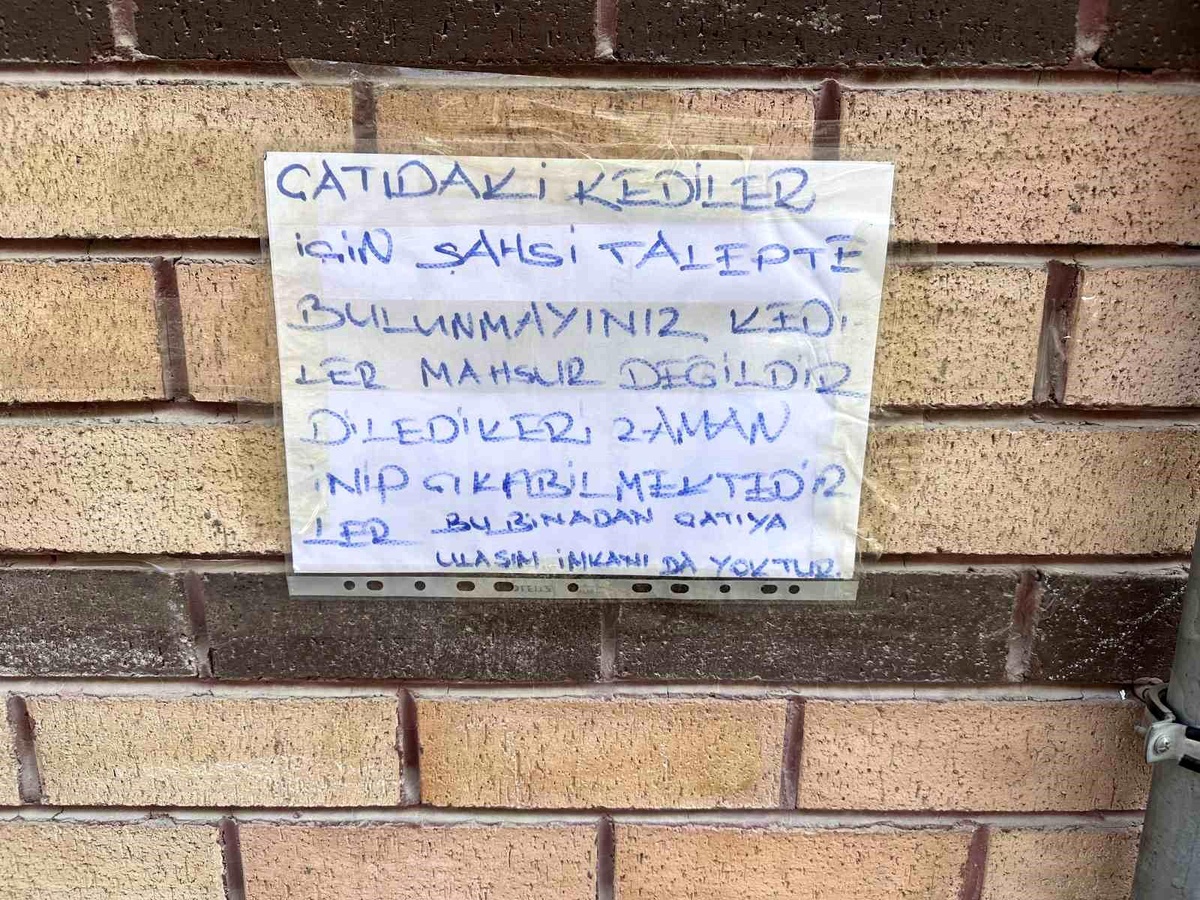 ÇATIDAKİ KEDİLER
İÇİN ŞAHSİ TALEPTE
BULUNMAYINIZ KEDİ
LER MAHSUR DEGİLDİR
DİLEDİKERİ ZAMAN
İNİP ÇIKABİLMEKTEDİR
LER BU BİNADAN ÇATIYA
ULASIM İMKANI DA YOKTUR.